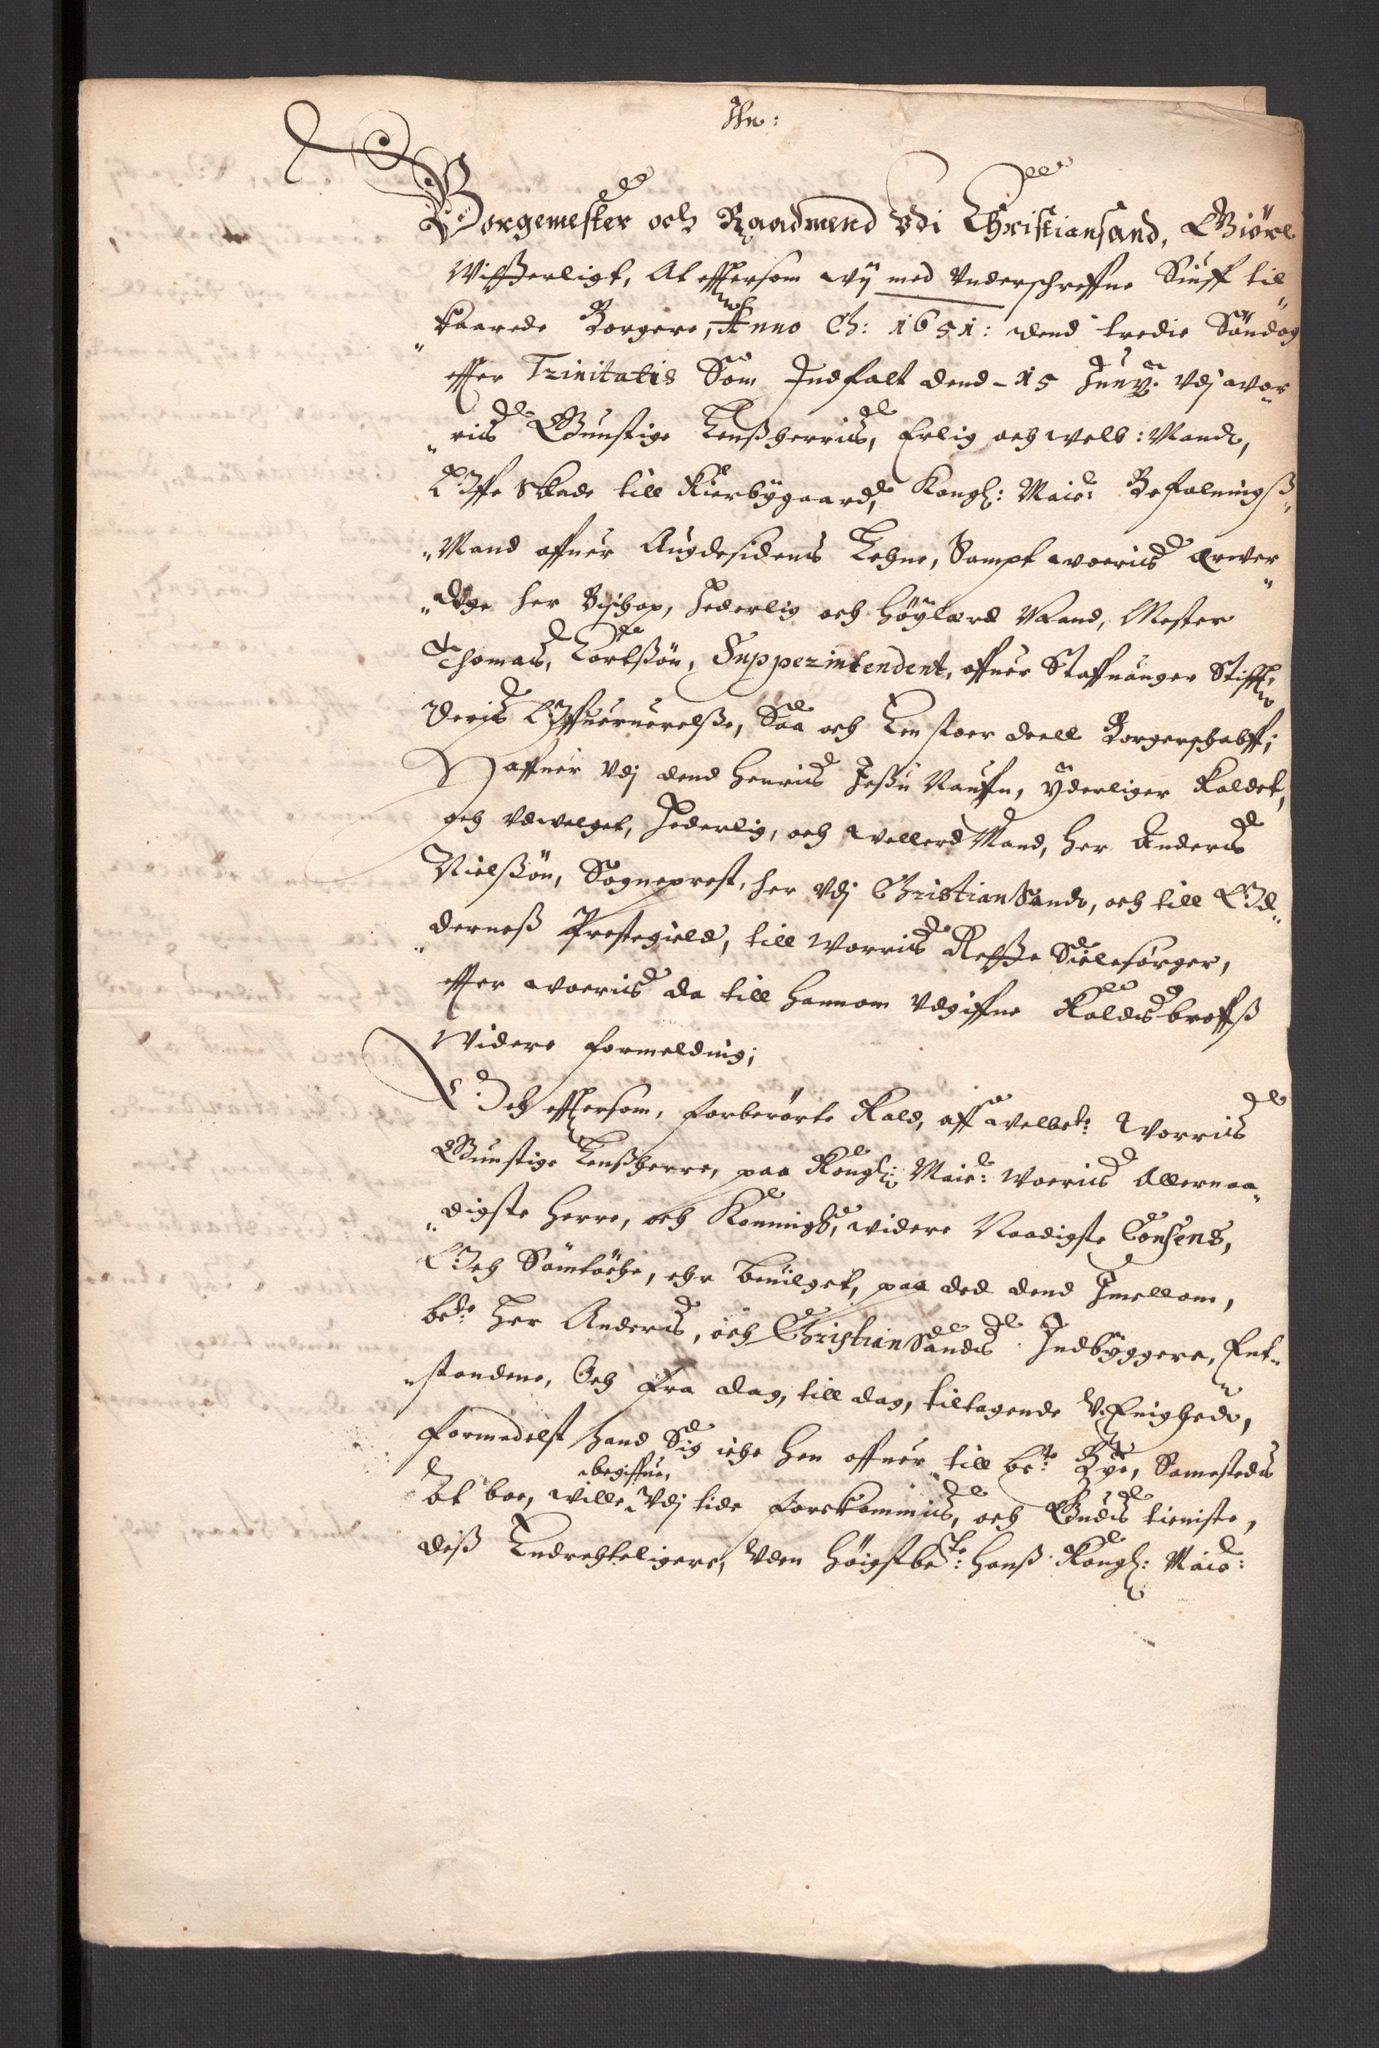 Borgemester och Raadmend Vdi Christiansand, Giörl
Witterligt, At effersom wij med Vnderschreffne Siuff til
kaarede Borgere, Anno Ch: 1651: dend tredie Söndag
effter Trinitatis Som Indfalt dend 15 Juny: Vdj wor
ris Gunstige Lenßherris, Erlig och welb: Mands,
Iffr Skade till Kierbygaard, Kongl: Mais: Befalnings
Mand offuer Augdesidens Lehne, Sampt woeris Erwer
dige her Bischop, Hederlig och Höylærd Mand, Mester
Thomas, Cortßön, Supperintendent, offuer Staffuanger Stifft,
Deris Offueruerelße, Saa och En stoer deell Borgerschabff;
Haffuer Vdj dend Herris Jeßu Naufn, Yderliger Kaldet,
och Vdwelget, Hederlig, och wellerd Mand, Her Anders
Nielßön, Sogneprest, her Vdj ChristianSands, och till Od
derneß Prestegield, till Worris Rette Sielesörger,
effter woeris da till hannom Vdgiffne Kaldsbreffß
Widere formelding;
Och effersom, forberörte Kald, aff welbet: Worris
Gunstige Lenßherre, paa Kongl: Mais: Woeris Allernaa
digste Herre, och Konnings, widere Naadigste Consens,
Och Samtöche, ehr beuilget, paa ded dend Imellom,
bete: Her Anders, och ChristianSands Indbyggere, Ent
standene, Och fra dag, till dag, tiltagende V-Enigheds,
formedelst hand Sig iche hen offuer till bete: Bye, Samesteds
At boe, wille begiffue, Vdj tide forekommis, och Guds tieniste,
deß Endrechteligere, Vden Höigstbete: Hanß Kongl: Mais: